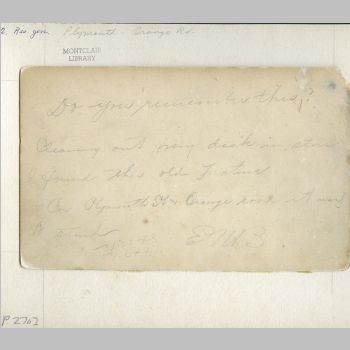 2. Res. gen. Plymouth - Orange Rd.
MONTCLAIR
LIBRARY
Do you remember this?
Cleaning out my desk in store
I found this old
Cor Plymouth St & Orange road it
to
E.W.B.
P 2702